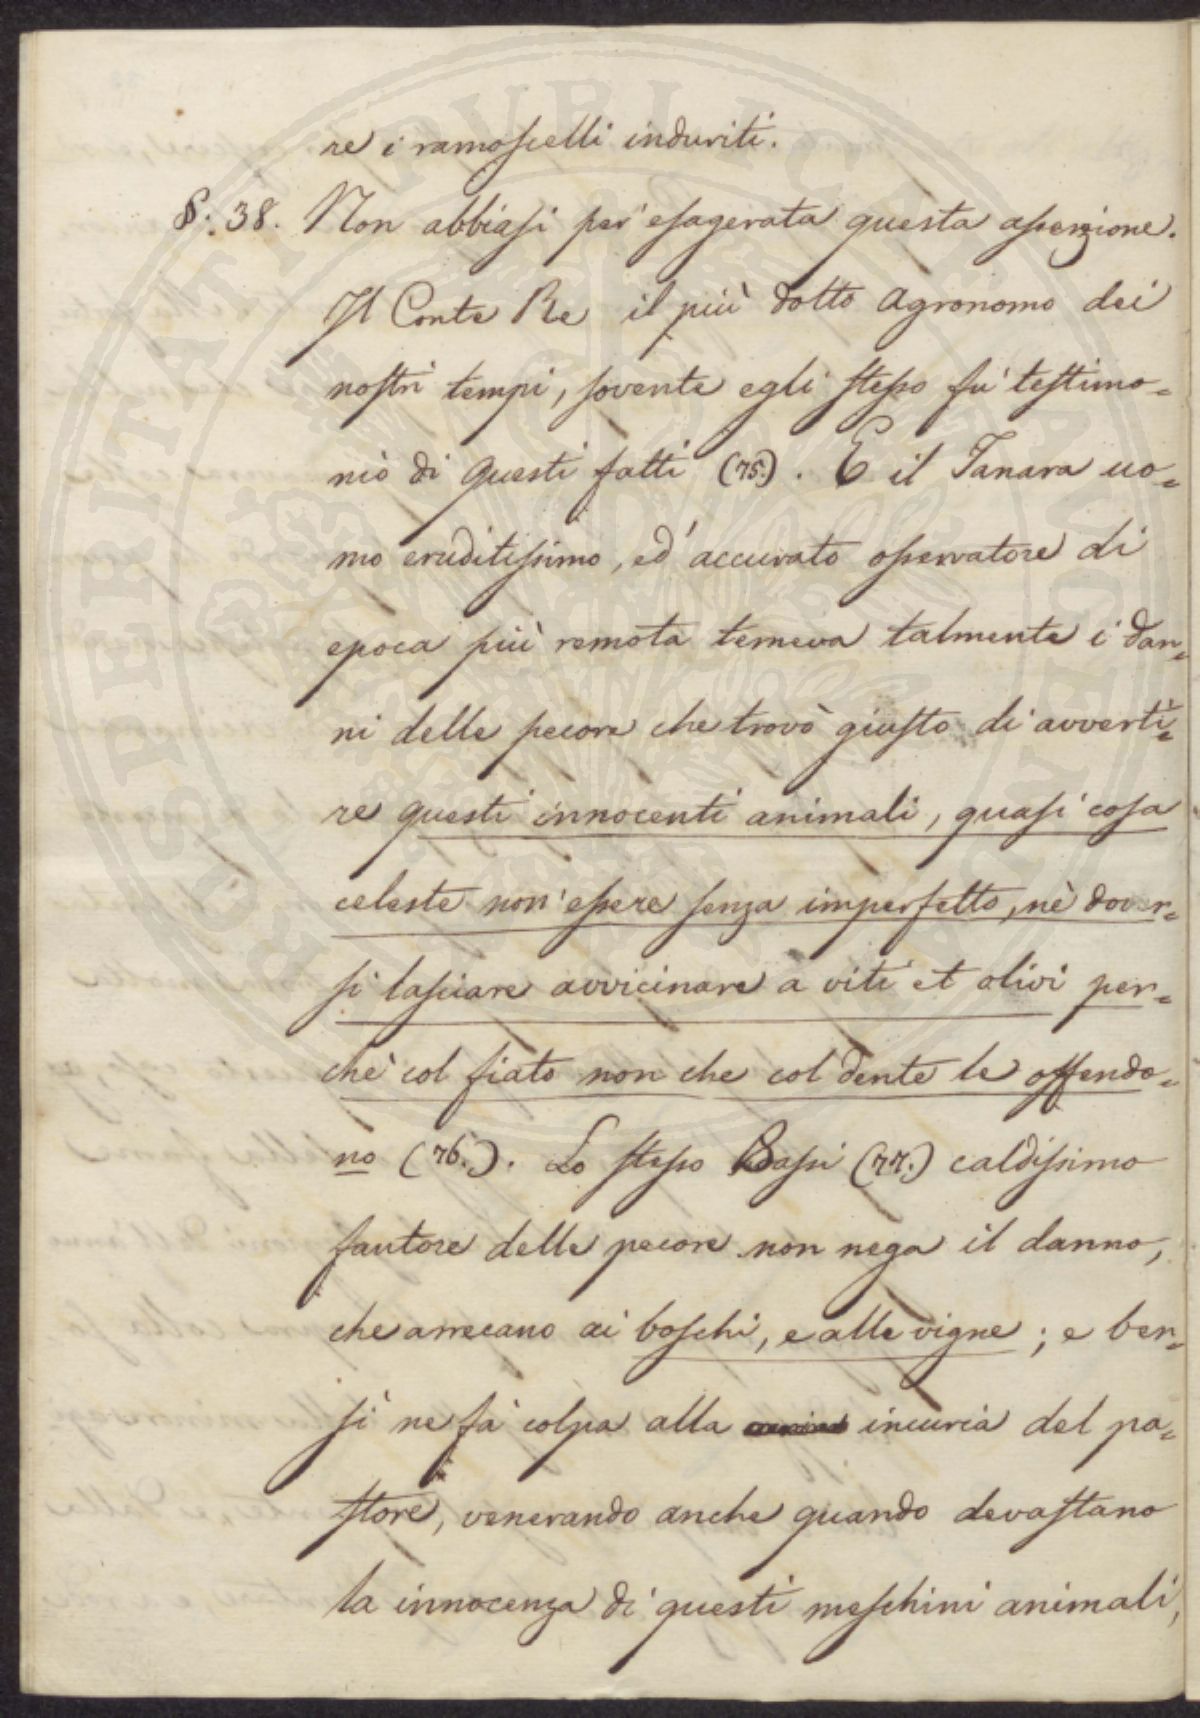 re i ramoscelli induriti.
§. 38. Non abbiasi per esagerata questa asserzione.
Il Conte Re il più dotto Agronomo dei
nostri tempi, sovente egli stesso fu' testimo=
nio di questi fatti (75.). E il Tanara uo=
mo eruditissimo, ed' accurato osservatore di
epoca più remota temeva talmente i dan=
ni delle pecore che trovò giusto di avverti=
re questi innocenti animali, quasi cosa
celeste non essere senza imperfetto, nè dover=
si lasciare avvicinare a viti et olivi per=
chè col fiato non che col dente le offendo=
no (76.). Lo stesso Bassi (77.) caldissimo
fautore delle pecore non nega il danno,
che arrecano ai boschi, e alle vigne; e ben=
sì ne fà colpa alla incuria del pa=
store, venerando anche quando devastano
la innocenza di questi meschini animali,